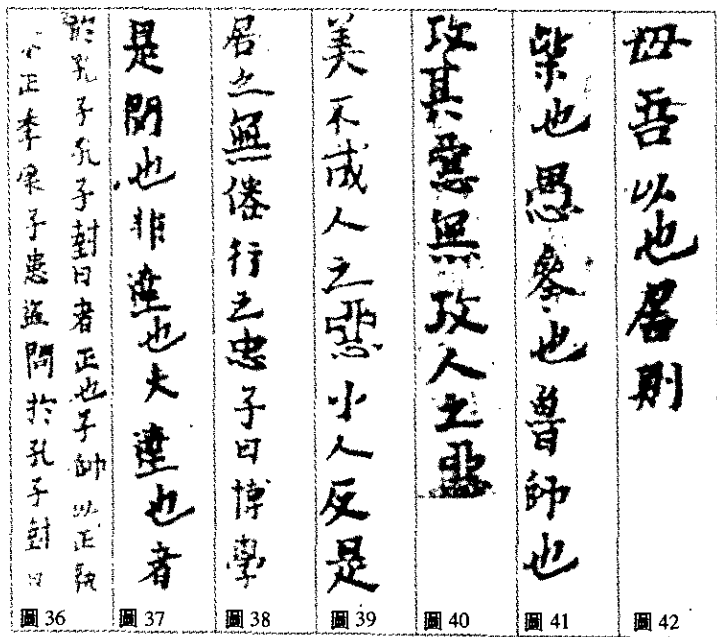 於孔子孔子對曰者正也子帥以正孰
不正季康子患盜問於孔子對曰
圖 36
是聞也非達也大達也者
圖 37
居之無倦行之忠子曰博學
圖 38
美不成人之惡小人反是
圖 39
攻其惡無攻人之惡
圖 40
柴也愚參也魯師也
圖 41
毋吾以也居則
圖 42